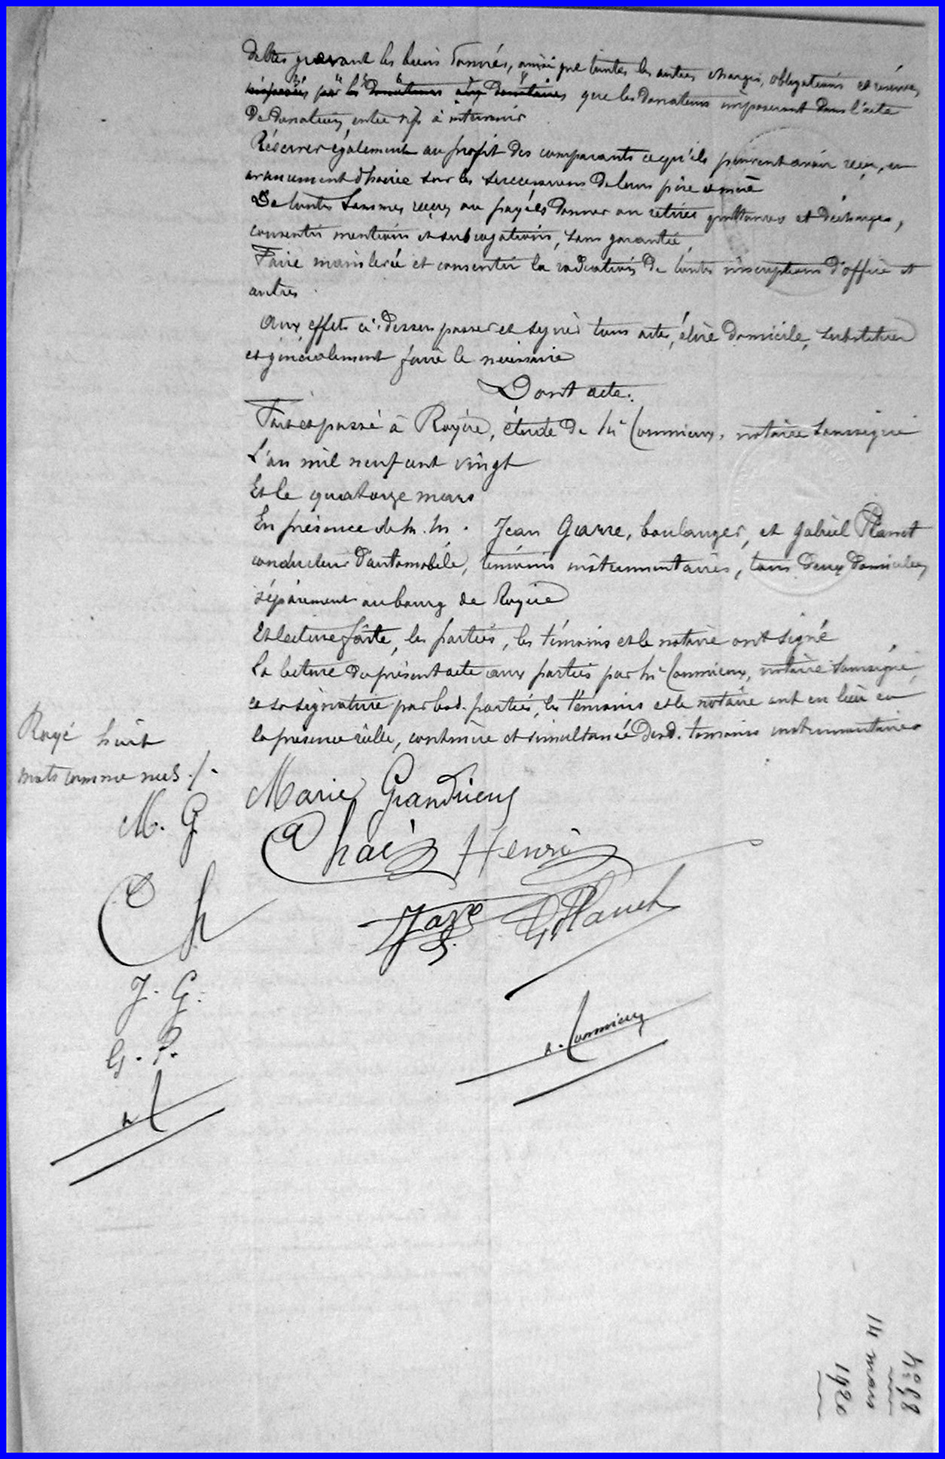 dettes grevant les biens donnés, ainsi que toutes les autres charges, obligations et réserves
imposées par les donateurs aux donataires que les donateurs imposeront dans l'acte
de donation, entre vifs à intervenir
Réserver également au profit des comparants ce qu'ils peuvent avoir reçu, en
avancement d'hoirie sur les successions de leurs père et mère
De toutes sommes reçues ou payées donner ou retirer quittances et décharges,
consentir mentions et subrogations, sans garantie,
Faire mainlevée et consentir la radiation de toutes inscriptions d'office et
autres.
Aux effets ci-dessus passer et signer tous actes, élire domicile, substituer
et généralement faire le nécessaire
Dont acte.
Fait et passé à Royère, étude de Me, notaire soussigné
L'an mil neuf cent vingt
Et le quatorze mars
En présence de M. M. Jean Garre, boulanger, et Gabriel Planet
conducteur d'automobile, témoins instrumentaires, tous deux domiciliés
séparément au bourg de Royère
Et lecture faite, les parties, les témoins et le notaire ont signé
La lecture du présent acte aux parties par Me, notaire soussigné,
et sa signature par lesd. parties, les témoins et le notaire ont eu lieu en
la présence réelle, continue et simultanée desd. témoins instrumentaires
Rayé huit
mots comme nuls ./.
M. G Marie Grandrieux
Ch Henri
G Planet
J. G.
G. P.
No 88
14 mars
1920